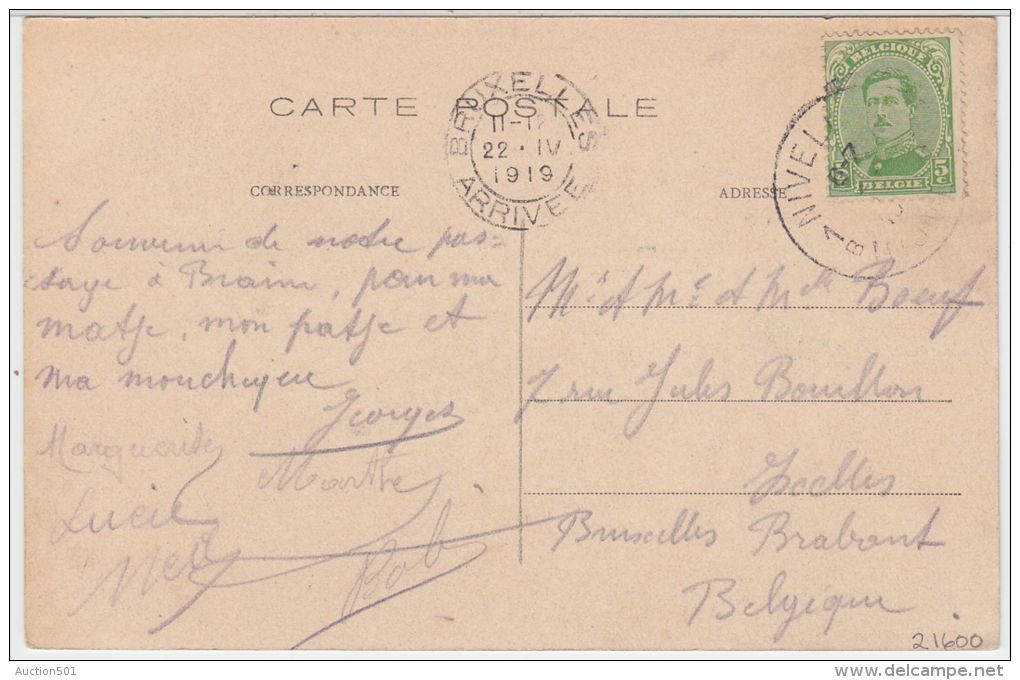 CARTE POSTALE
BRUXELLES
11-12
22 · IV
1919
ARRIVEE
BELGIQUE
5c
BELGIE
NIVEL
6-7
CORRESPONDANCE
ADRESSE
Souvenir de notre pas=
=sage à Braine, pour ma
matje, mon patje et
ma
Georges
Marguerite
Marthe
Lucie
Bob
Mr et Me et Melle Boeuf
7 rue Jules Bouillon
Ixelles
Bruxelles Brabant
Belgique
21600
Auction501
www.delcampe.net